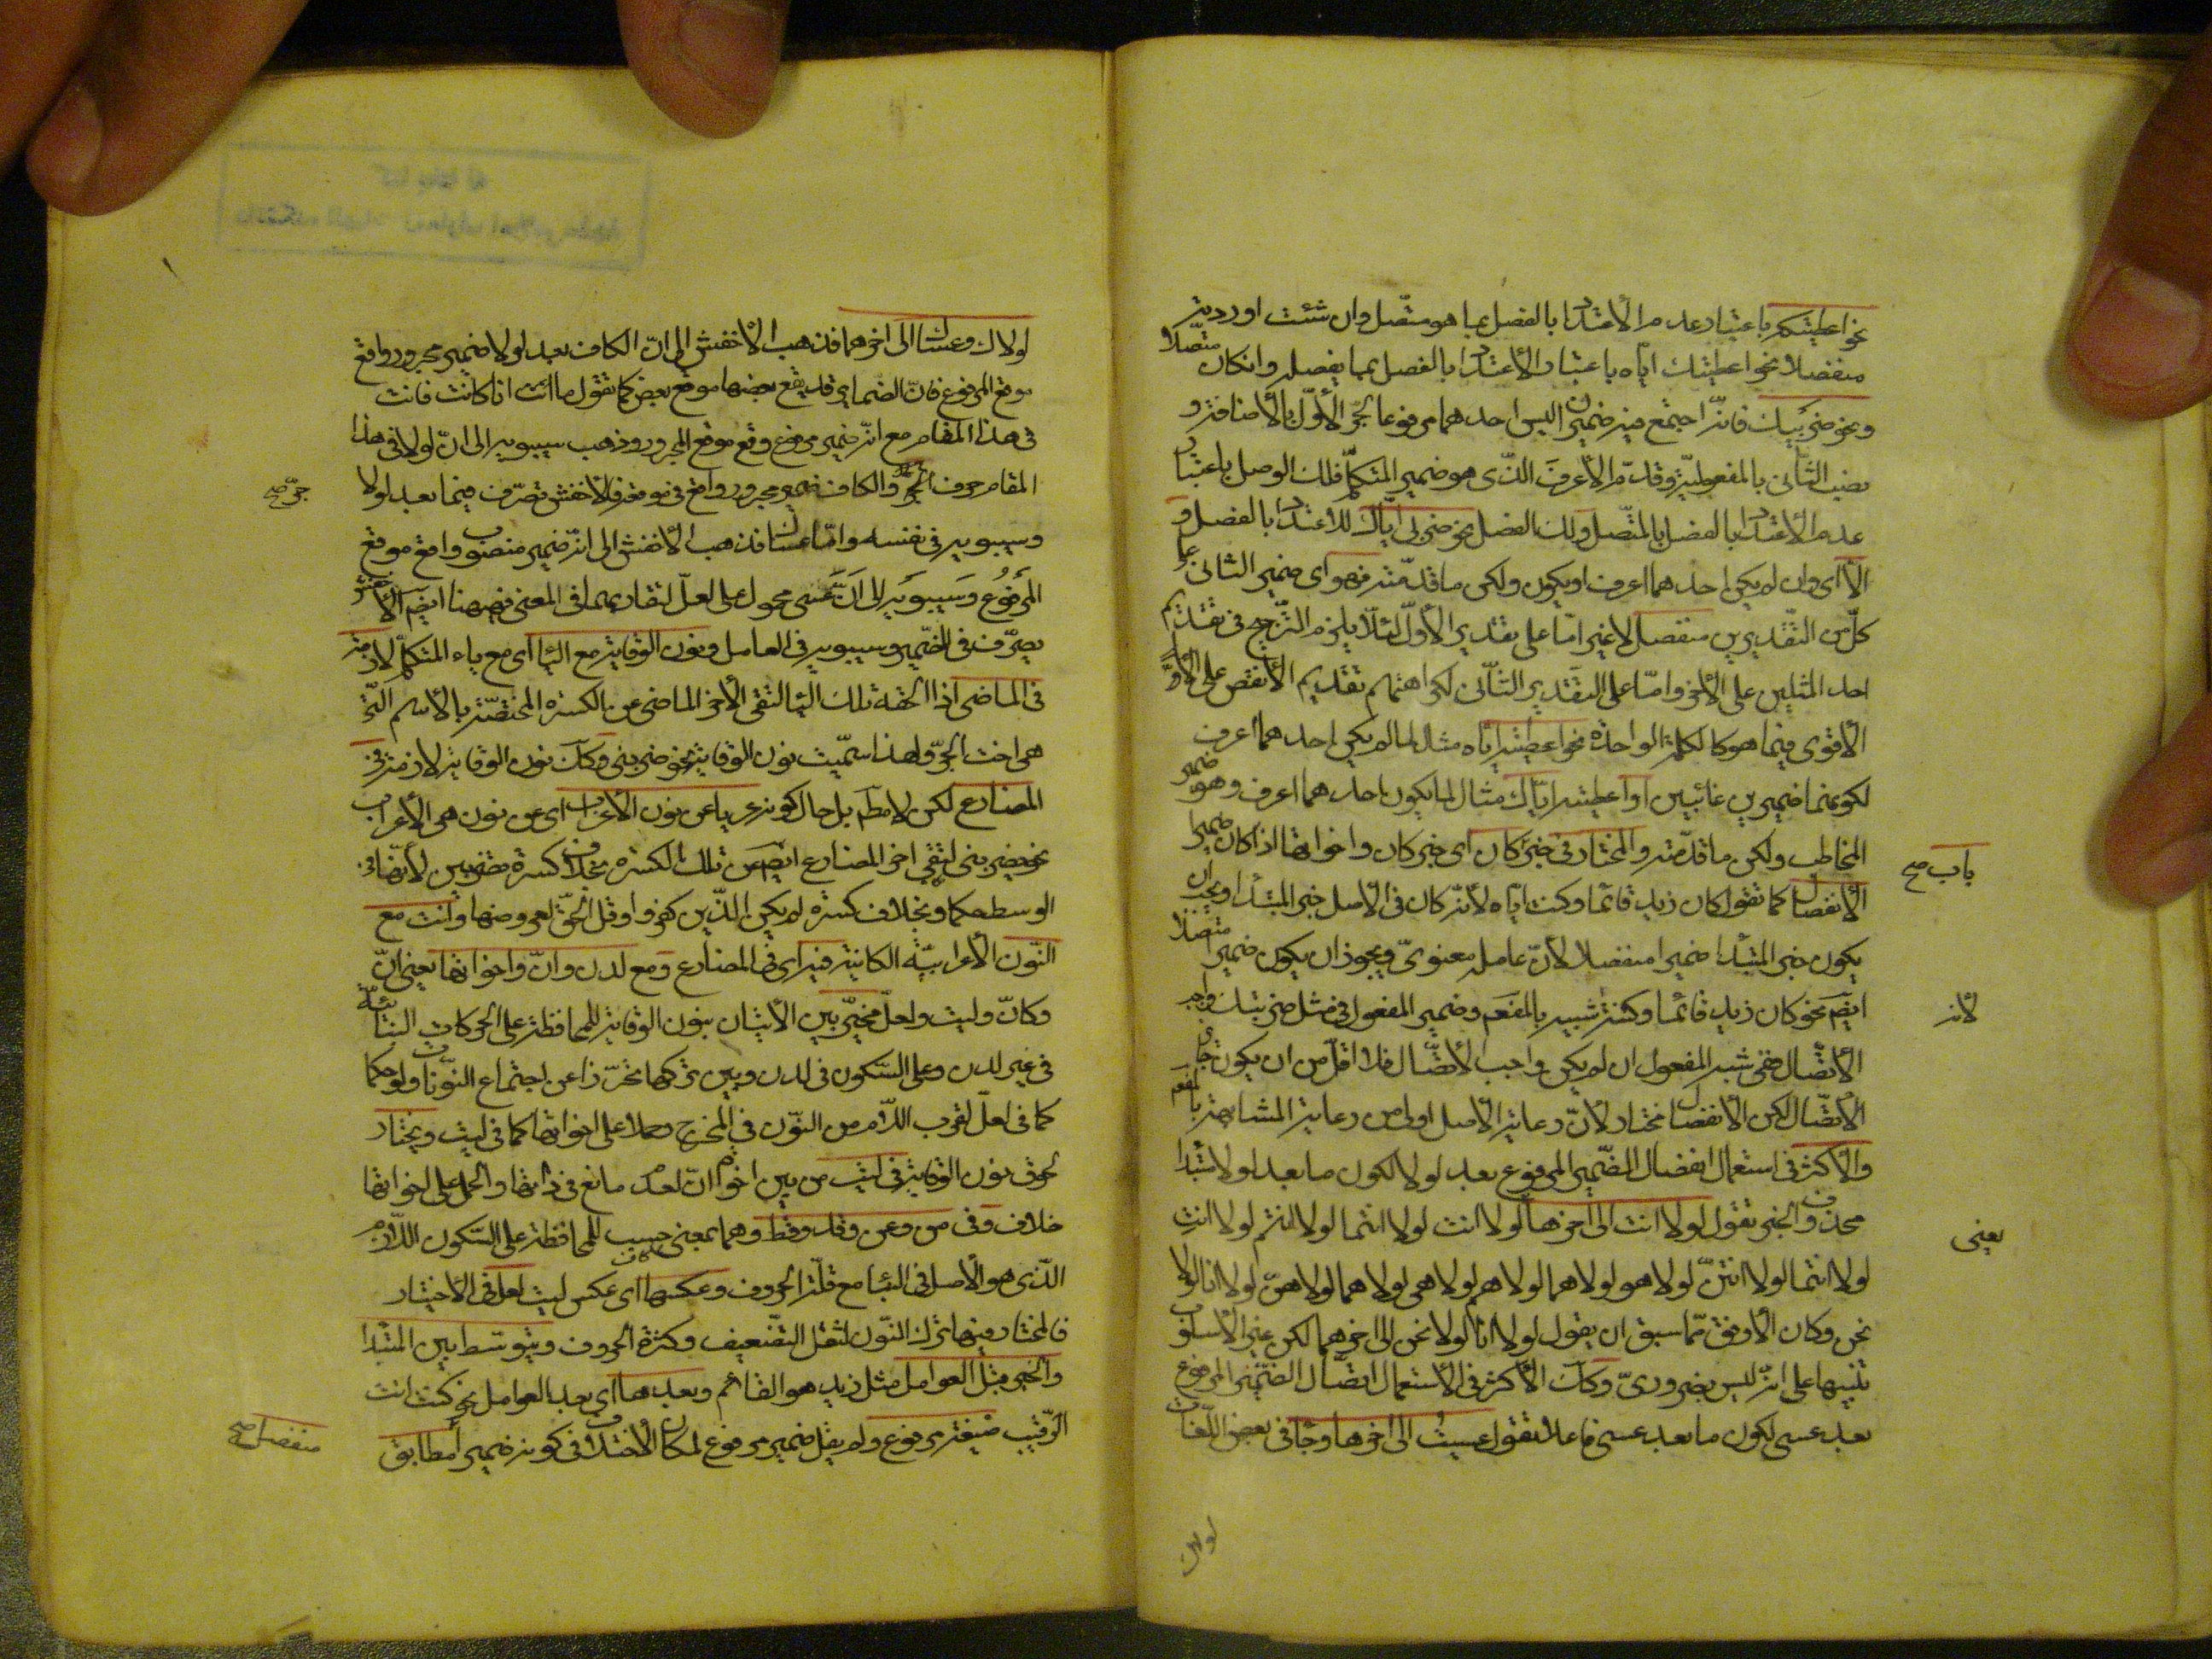 نحو اعطيتكم باعتبار عدم الاعتداد بالفصل بما هو متصل وان شئت اوردته
منفصلا نحو اعطيتك اياه باعتبار الاعتداد بالفصل بما يفصله وان كان متصلا
ونحو ضربيك فانه اجتمع فيه ضميران ليس احدهما مرفوعا لجر الاول بالاضافة و
نصب الثانى بالمفعولية وقدم الاعرف الذى هو ضمير المتكلم فلك الوصل باعتبار
عدم الاعتداد بالفصل بالمتصل ولك الفصل نحو ضربى اياك للاعتداد بالفصل و
الا اى وان لم يكن احدهما اعرف او يكون ولكن ما قدمته فهو اى ضمير الثانى على
كل من التقديرين منفصل لا غير اما على تقدير الاول لئلا يلزم الترجيح فى تقديم
احد المثلين على الاخر واما على التقدير الثانى لكراهتهم تقديم الانقص على
الاقوى فيما هو كالكلمة الواحدة نحو اعطيته اياه مثال لما لم يكن احدهما اعرف
لكونهما ضميرين غائبين او اعطيته اياك مثال لما يكون احدهما اعرف وهو ضمير
المخاطب ولكن ما قدمته والمختار فى خبر كان اى خبر كان واخواتها اذا كان ضميرا
باب صح
الانفصال كما تقول كان زيد قائما وكنت اياه لانه كان فى الاصل خبر المبتدا ويجب ان
يكون خبر المبتدا ضميرا منفصلا لان عامله معنوى ويجوز ان يكون ضميرا متصلا
ايضا نحو كان زيد قائما وكنته شبيه بالمفعول وضمير المفعول فى مثل ضربتك واجب
لانه
الاتصال ففى شبه المفعول ان لم يكن واجب الاتصال فلا اقل من ان يكون جائز
الاتصال لكن الانفصال مختار لان رعاية الاصل اولى من رعاية المشابهة بالمفعول
والاكثر فى استعمال انفصال الضمير المرفوع بعد لولا لكون ما بعد لولا مبتدا
محذوف الخبر تقول لولا انت الى اخرها لولا انت لولا انتما لولا انتم لولا انت
يعنى
لولا انتما لولا انتن لولا هو لولا هما لولا هم لولا هى لولا هما لولا هن لولا انا لولا
نحن وكان الاوفق بما سبق ان يقول لولا انا لولا نحن الى اخرهما لكن غير الاسلوب
تنبيها على انه ليس بضرورى وكان الاكثر فى الاستعمال اتصال الضمير المرفوع
بعد عسى لكون ما بعد عسى فاعلا تقول عسيت الى اخرها وجاء فى بعض اللغات
لولاك
لولاك وعساك الى اخرهما فذهب الاخفش الى ان الكاف بعد لولا ضمير مجرور واقع
موقع المرفوع فان الضماير قد يقع بعضها موقع بعض كما تقول ما انت انا كانت فانت
فى هذا المقام مع انه ضمير مرفوع وقع موقع المجرور وذهب سيبويه الى ان لولا فى هذا
المقام حرف الجر والكاف ضمير مجرور واقع فى موقعه فالاخفش تصرف فيما بعد لولا
جر صح
وسيبويه فى نفسه واما عساك فذهب الاخفش الى انه ضمير منصوب واقع موقع
المرفوع وسيبويه الى ان عسى محمول على لعل لتقاربهما فى المعنى فههنا ايضا الاخفش
يصرف فى الضمير وسيبويه فى العامل ونون الوقاية مع الياء اى مع ياء المتكلم لازمة
فى الماضى اذا لحقه تلك الياء لتقى الاخر الماضى عن الكسرة المختصة بالاسم التى
هى اخت الجر ولهذا سميت نون الوقاية نحو ضربنى وكان نون الوقاية لازمة فى
المضارع لكن لا مطلقا بل حال كونه عريا عن نون الاعراب اى عن نون هى الاعراب
نحو يضربنى لتقى اخر المضارع ايضا عن تلك الكسرة بخلاف كسرة تضربين لانها فى
الوسط حكما وبخلاف كسرة لم يكن الذين كفروا وقل الحق لعروضها وانت مع
النون الاعرابية الكائنة فيه اى فى المضارع ومع لدن وان واخواتها يعنى ان
وكان وليت ولعل مخير بين الاتيان بنون الوقاية للمحافظة على الحركات البنائية
فى غير لدن وعلى السكون فى لدن وبين تركها تحرزا عن اجتماع النونات ولو حكما
كما فى لعل لقرب اللام من النون فى المخرج وحملا على اخواتها كما فى ليت ويختار
لحوق نون الوقاية فى ليت من بين اخوات ان لعدم مانع فى ذاتها والحمل على اخواتها
خلاف وفى من وعن وقد وقط وهما بمعنى حسب للمحافظة على السكون اللازم
الذى هو الاصل فى البناء مع قلة الحروف وعكسها اى عكس ليت لعل فى الاختيار
فالمختار فيها ترك النون لثقل التضعيف وكثرة الحروف ويتوسط بين المبتدا
والخبر قبل العوامل مثل زيد هو القائم وبعدها اى بعد العوامل نحو كنت انت
الرقيب صيغة مرفوع ولم يقل ضمير مرفوع لمكان الاختلاف فى كونه ضميرا مطابق
منفصل صح